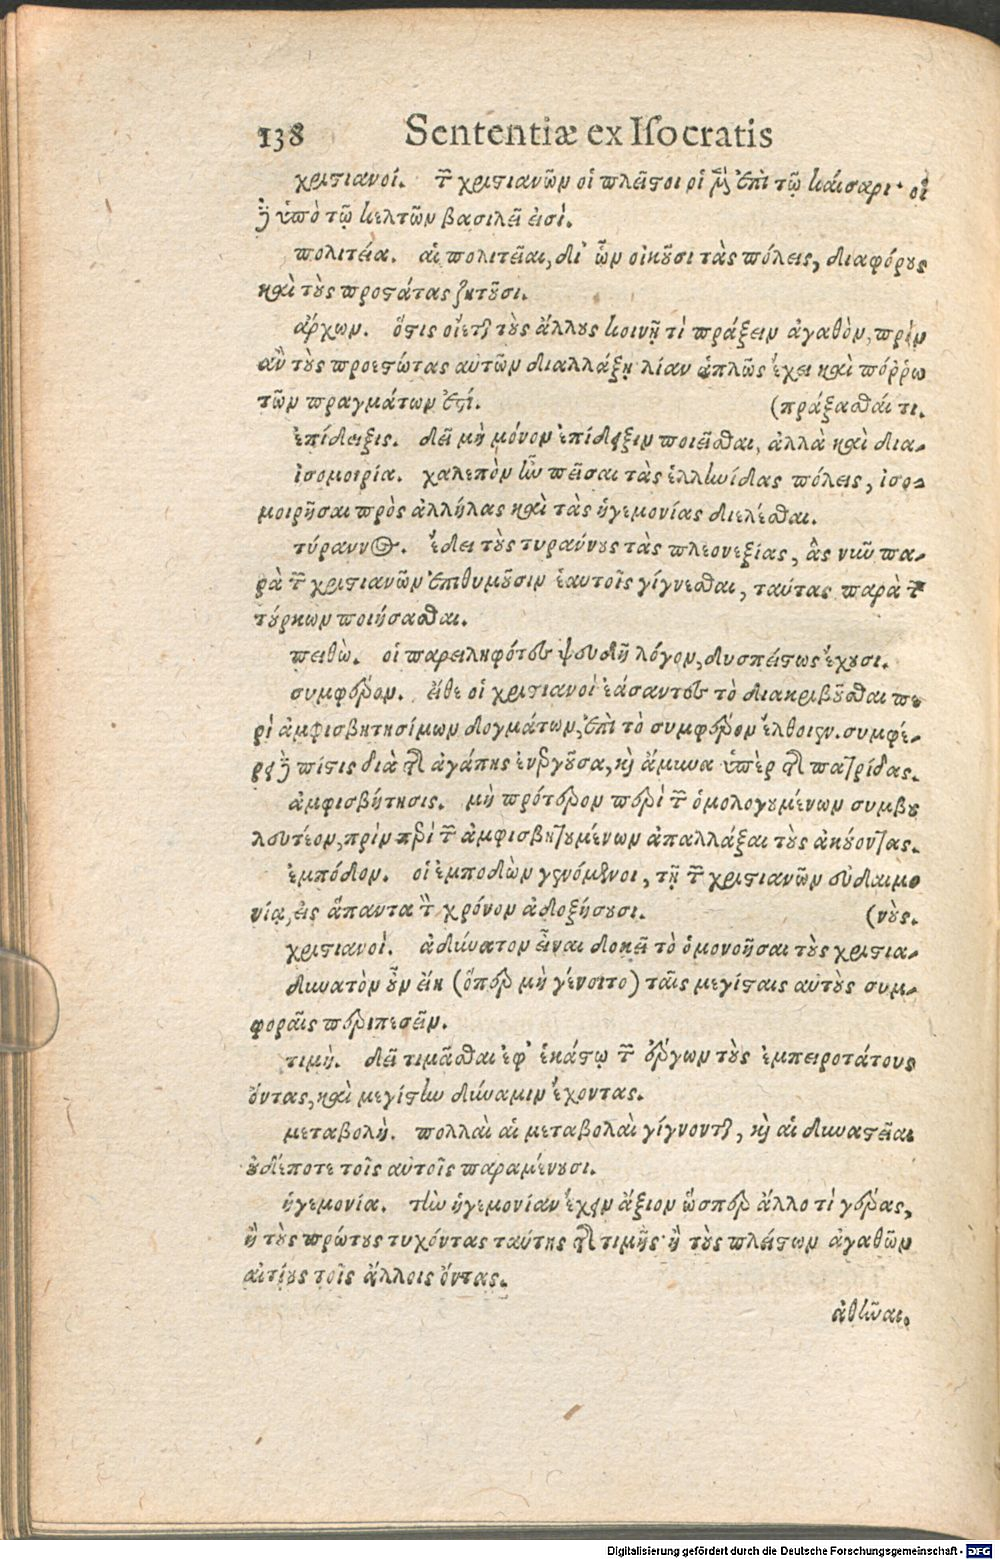 138 Sententiæ ex Iſocratis
χριστιανοί. τῶν χριστιανῶν οἱ πλεῖστοι οἱ μὲν ἐπὶ τῷ καίσαρι· οἱ
δὲ ὑπὸ τῷ κελτῶν βασιλεῖ εἰσὶ.
πολιτεία. αἱ πολιτεῖαι, δι' ὧν οἰκοῦσι τὰς πόλεις, διαφόρους
καὶ τοὺς προστάτας ζητοῦσι.
ἄρχων. ὅστις οἴεται τοὺς ἄλλους κοινῇ τὶ πράξειν ἀγαθὸν, πρὶν
ἂν τοὺς προεστῶτας αὐτῶν διαλλάξῃ λίαν ἁπλῶς ἔχει καὶ πόῤῥω
τῶν πραγμάτων ἐστί. (πράξασθαί τι.
ἐπίδειξις. δεῖ μὴ μόνον ἐπίδειξιν ποιεῖσθαι, ἀλλὰ καὶ δια-
ἰσομοιρία. χαλεπὸν ἦν πεῖσαι τὰς ἑλληνίδας πόλεις, ἰσο-
μοιρῆσαι πρὸς ἀλλήλας καὶ τὰς ἡγεμονίας διελέσθαι.
τύραννος. ἔδει τοὺς τυράννους τὰς πλεονεξίας, ἃς νῦν πα-
ρὰ τῶν χριστιανῶν ἐπιθυμοῦσιν ἑαυτοῖς γίγνεσθαι, ταύτας παρὰ τῶν
τύρκων ποιήσασθαι.
πειθὼ. οἱ παρειληφότες ψευδῆ λόγον, δυσπείστως ἔχουσι.
συμφέρον. εἴθε οἱ χριστιανοὶ ἐάσαντες τὸ διακριβοῦσθαι πε
ρὶ ἀμφισβητησίμων δογμάτων, ἐπὶ τὸ συμφέρον ἔλθοιεν. συμφέ-
ρει δὲ πίστις διὰ τῆς ἀγάπης ἐνεργοῦσα, καὶ ἄμυνα ὑπὲρ τῆς πατρίδας.
ἀμφισβήτησις. μὴ πρότερον περὶ τῶν ὁμολογουμένων συμβου
λευτέον, πρὶν περὶ τῶν ἀμφισβητουμένων ἀπαλλάξαι τοὺς ἀκούοντας.
ἐμπόδον. οἱ ἐμποδὼν γενόμενοι, τῇ τῶν χριστιανῶν εὐδαιμο
νίᾳ, εἰς ἅπαντα τὸν χρόνον ἀδοξήσουσι. (νοὺς.
χριστιανοὶ. ἀδύνατον εἶναι δοκεῖ τὸ ὁμονοῆσαι τοὺς χριστια-
δυνατὸν οὖν εἴη (ὅπερ μὴ γένοιτο) ταῖς μεγίσταις αὐτοὺς συμ-
φοραῖς περιπεσεῖν.
τιμὴ. δεῖ τιμᾶσθαι ἐφ' ἑκάστῳ τῶν ἔργων τοὺς ἐμπειροτάτους
ὄντας, καὶ μεγίστην δύναμιν ἔχοντας.
μεταβολὴ. πολλαὶ αἱ μεταβολαὶ γίγνονται, καὶ αἱ δυναστεῖαι
οὐδέποτε τοῖς αὐτοῖς παραμένουσι.
ἡγεμονία. τὴν ἡγεμονίαν ἔχειν ἄξιον ὥσπερ ἄλλο τὶ γέρας,
ἢ τοὺς πρώτους τυχόντας ταύτης τῆς τιμῆς· ἢ τοὺς πλείστων ἀγαθῶν
αἰτίους τοῖς ἄλλοις ὄντας.
ἀθῆναι.
Digitalisierung gefördert durch die Deutsche Forschungsgemeinschaft - DFG